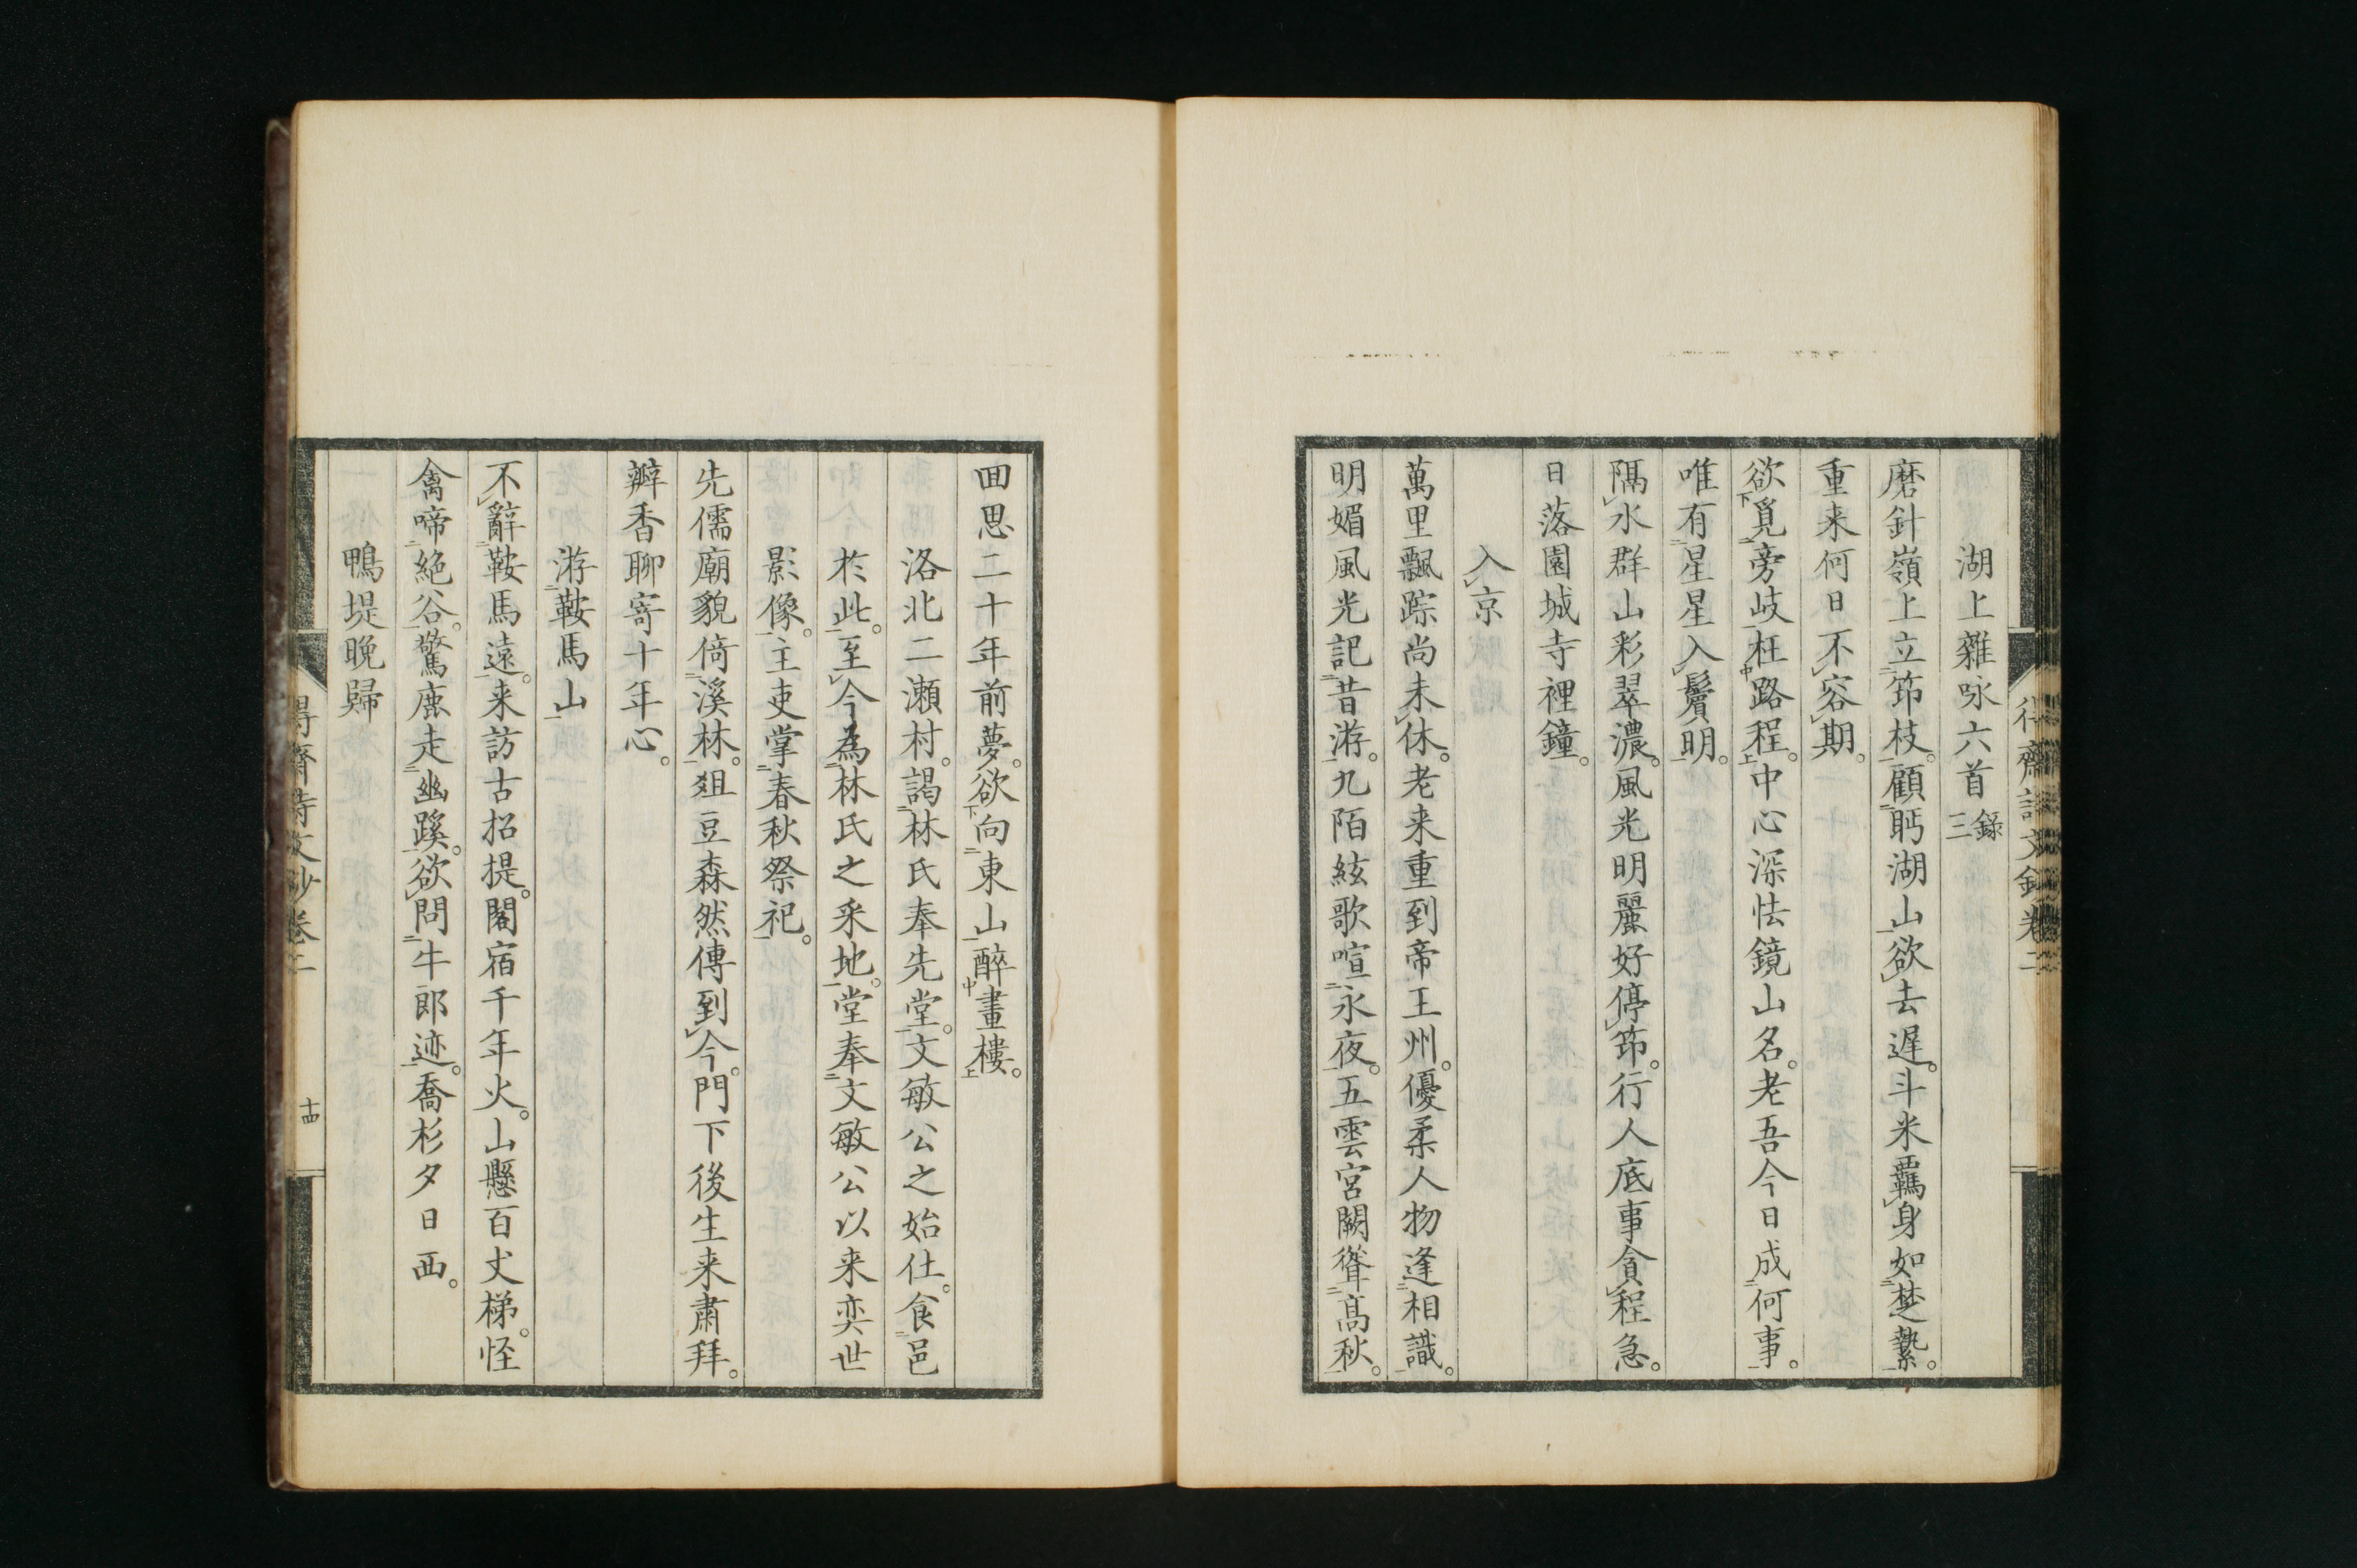 湖上雜咏六首錄三
磨針嶺上立笻枝。顧眄湖山欲去遲。斗米羈身如楚縶。
重来何日不容期。
欲覓旁岐枉路程。中心深怯鏡山名。老吾今日成何事。
唯有星星入鬢明。
隔水群山彩翠濃。風光明麗好停笻。行人底事貪程急。
日落園城寺裡鐘。
入京
萬里飄踪尚未休。老来重到帝王州。優柔人物逢相識。
明媚風光記昔游。九陌絃歌喧永夜。五雲宮闕聳高秋。
囬思二十年前夢。欲向東山醉畫樓。
洛北二瀬村。謁林氏奉先堂。文敏公之始仕。食邑
於此。至今為林氏之采地。堂奉文敏公以来奕世
影像。主吏掌春秋祭祀。
先儒廟貌倚溪林。俎豆森然傳到今。門下後生来肅拜。
瓣香聊寄十年心。
游鞍馬山
不辭鞍馬遠。来訪古招提。閣宿千年火。山懸百丈梯。怪
禽啼絶谷。驚鹿走幽蹊。欲問牛郎迹。喬杉夕日西。
鴨堤晩歸
得齋詩文鈔卷二
十四